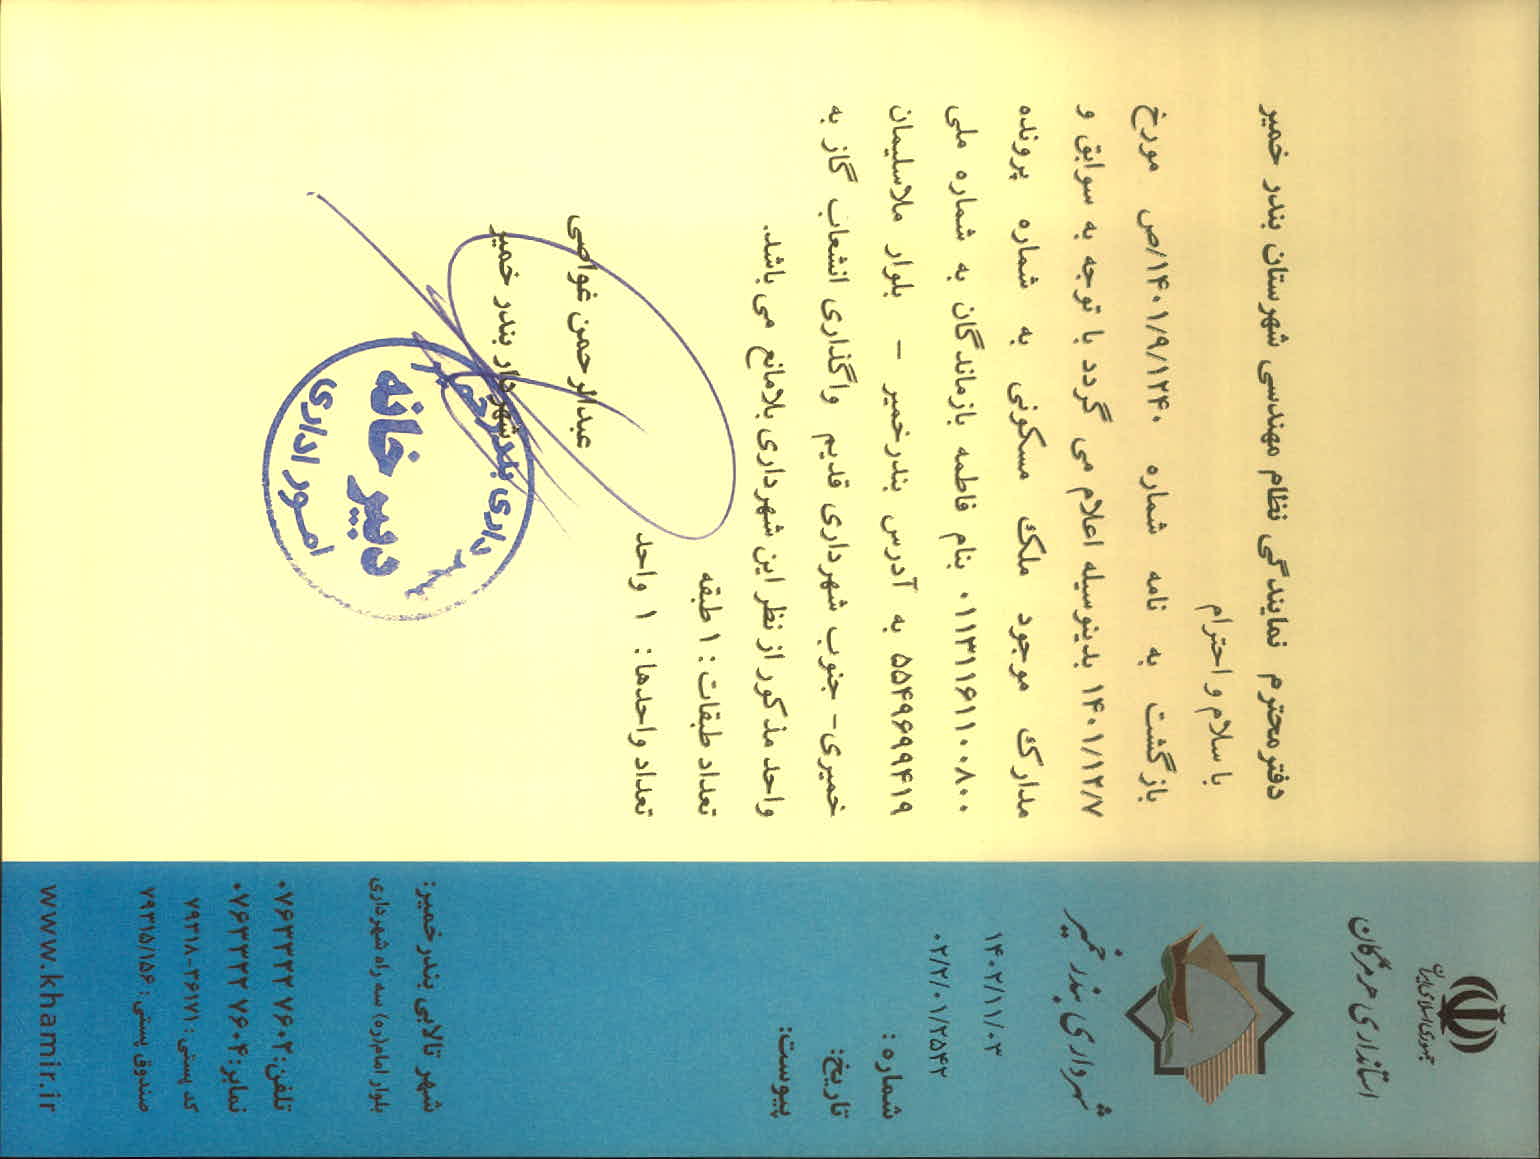 جمهوری اسلامی ایران
استانداری هرمزگان
شهرداری بندر خمیر
۱۴۰۲/۱۱/۰۳
۰۲/۲/۰۱/۲۵۴۲
شماره :
تاریخ:
پیوست:
دفتر محترم نمایندگی نظام مهندسی شهرستان بندر خمیر
با سلام و احترام
بازگشت به نامه شماره ۱۴۰۱/۹/۱۲۴۰/ص مورخ
۱۴۰۱/۱۲/۷ بدینوسیله اعلام می گردد با توجه به سوابق و
مدارک موجود ملک مسکونی به شماره پرونده
۰۱۱۳۱۱۶۱۱۰۰۸۰۰ بنام فاطمه بازماندگان به شماره ملی
۵۵۴۹۶۹۹۴۱۹ به آدرس بندرخمیر – بلوار ملاسلیمان
خمیری- جنوب شهرداری قدیم واگذاری انشعاب گاز به
واحد مذکور از نظر این شهرداری بلامانع می باشد.
تعداد طبقات : ۱ طبقه
تعداد واحدها : ۱ واحد
عبدالرحمن غواصی
شهردار بندر خمیر
شهرداری بندر خمیر
دبیرخانه
امور اداری
شهر تالابی بندر خمیر:
بلوار امام(ره) سه راه شهرداری
تلفن: ۰۷۶۳۳۲۳۷۶۰۲
نمابر: ۰۷۶۳۳۲۳۷۶۰۴
کد پستی : ۳۶۱۷۱-۷۹۳۱۸
صندوق پستی : ۷۹۳۱۵/۱۵۶
www.khamir.ir